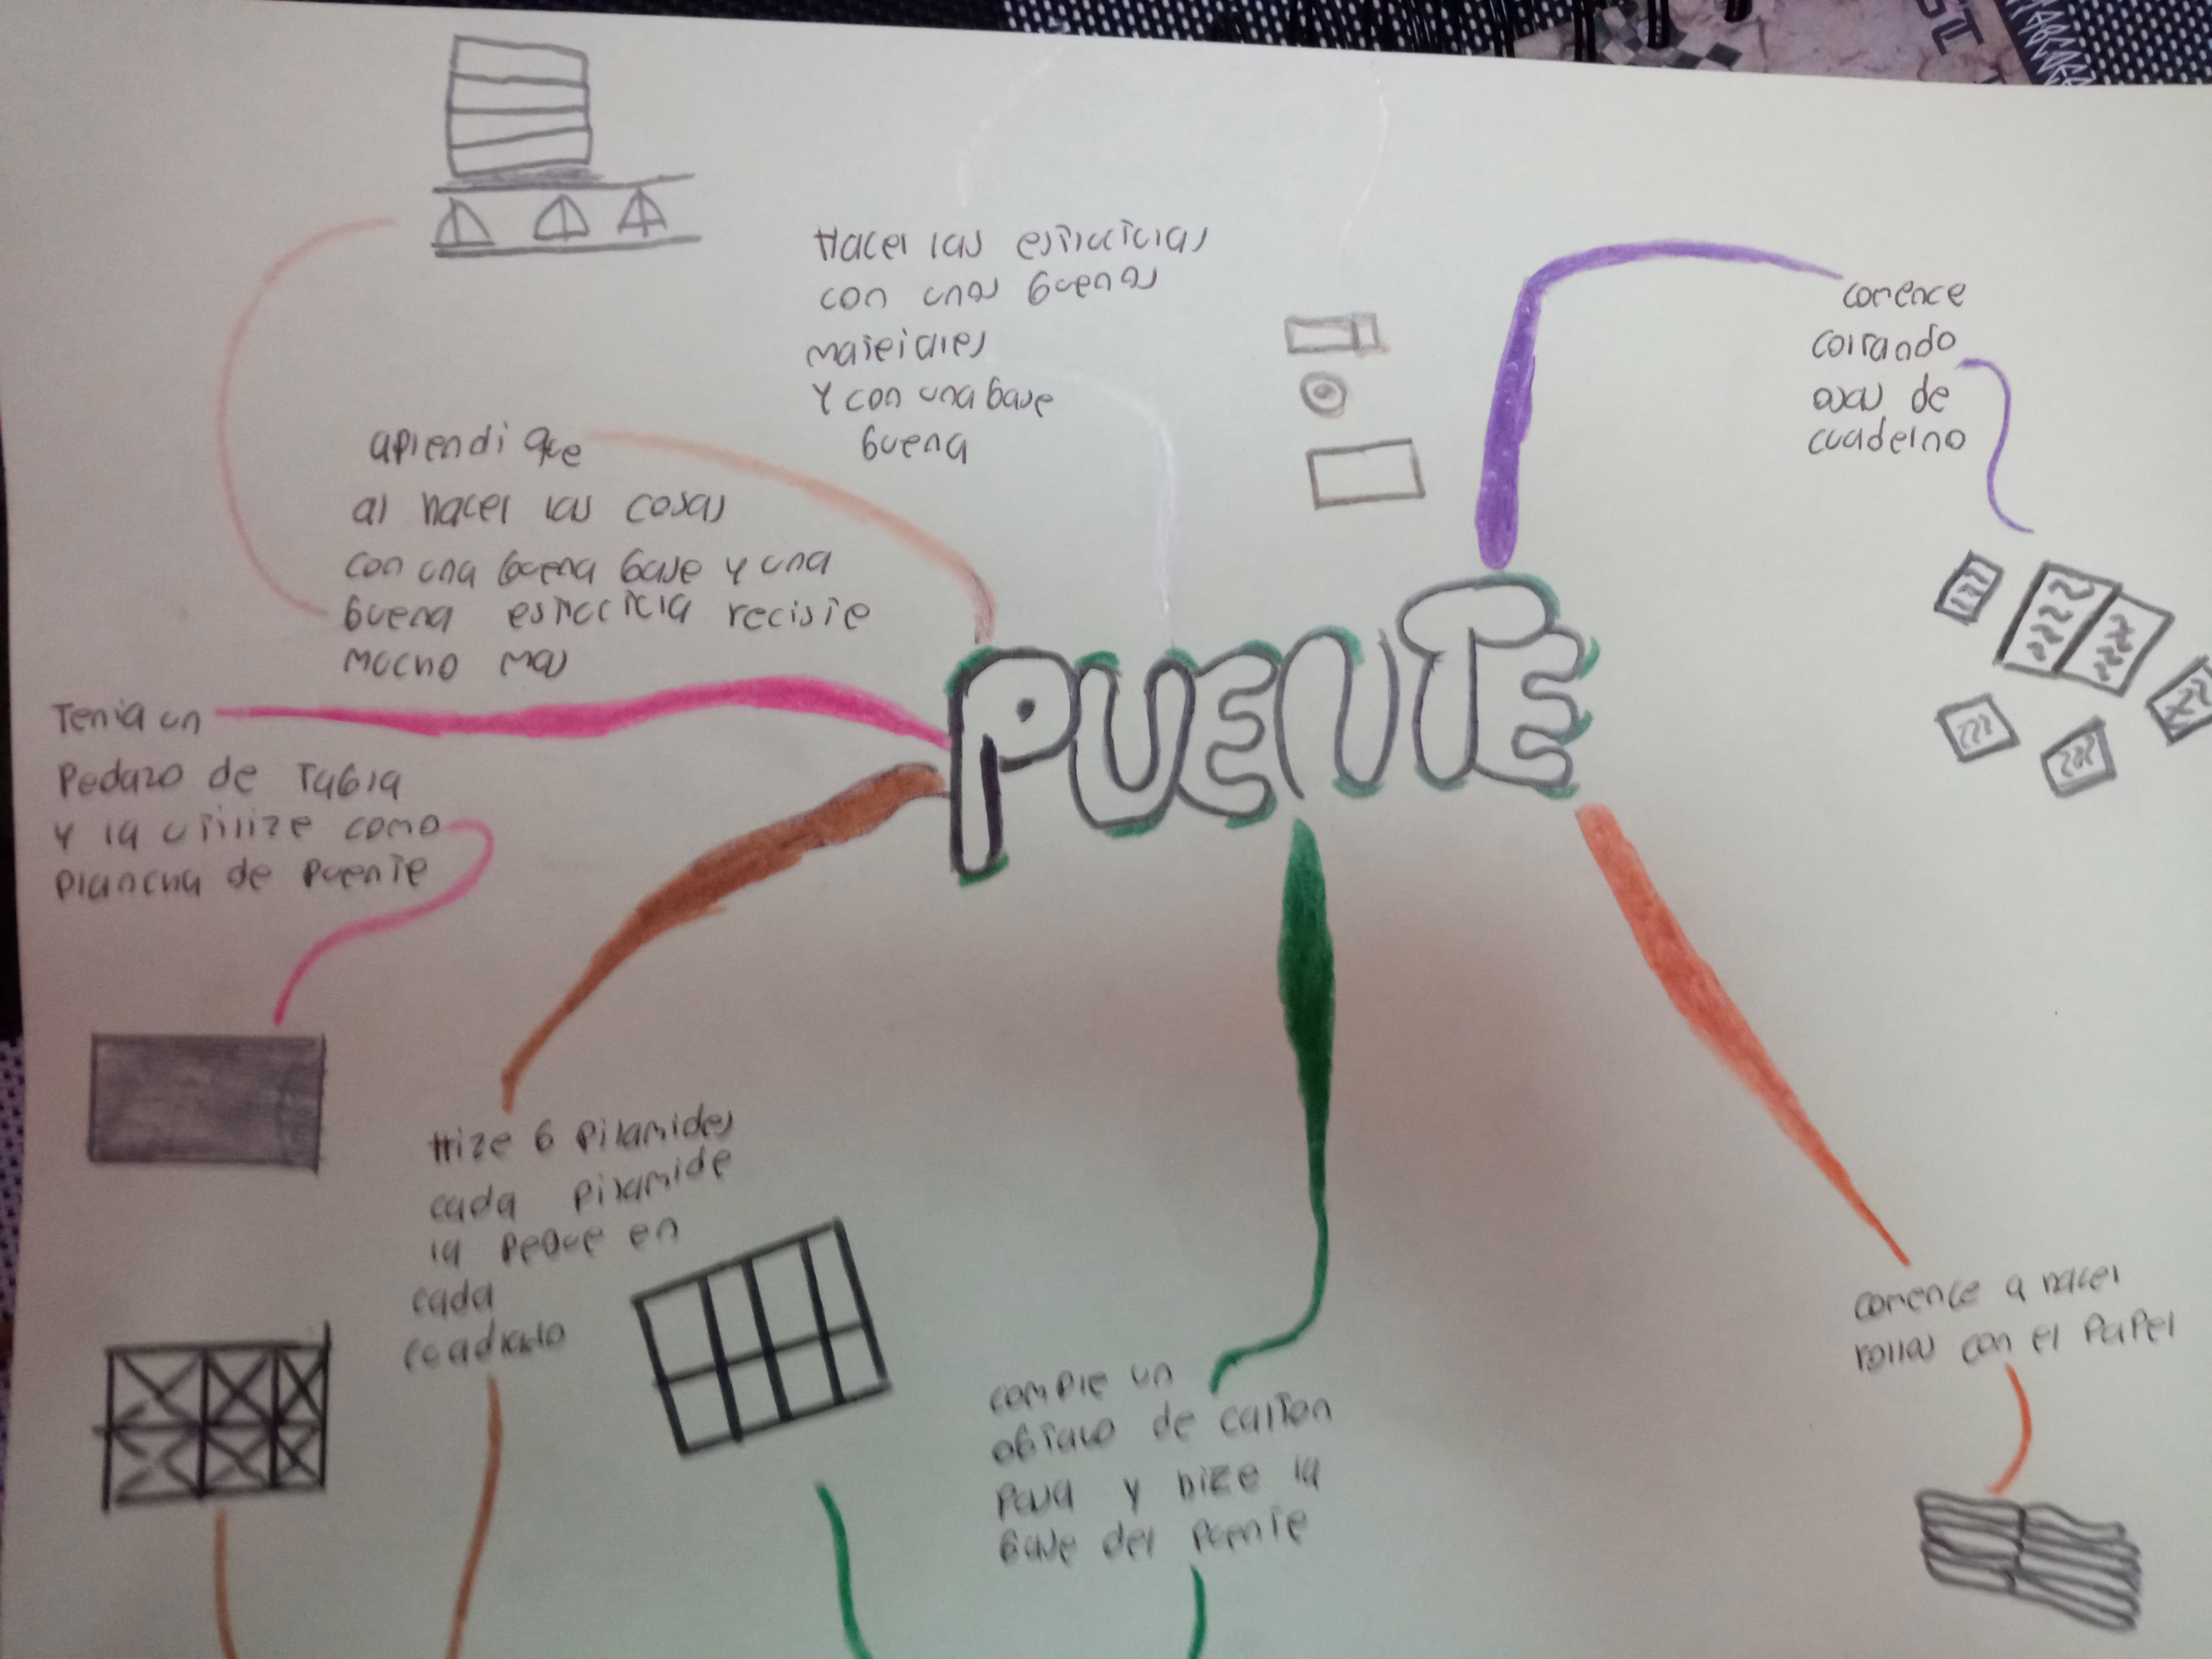 PUENTE
comence
cortando
ojas de
cuaderno
comence a hacer
rollos con el papel
compre un
de carton
paja y hize la
base del puente
Hize 6 piramides
cada piramide
la pegue en
cada
cuadrado
Tenia un
pedazo de tabla
y la utilize como
plancha de puente
aprendi que
al hacer las cosas
con una buena base y una
buena estructura reciste
mucho mas
Hacer las estructuras
con unos buenos
materiales
y con una base
buena